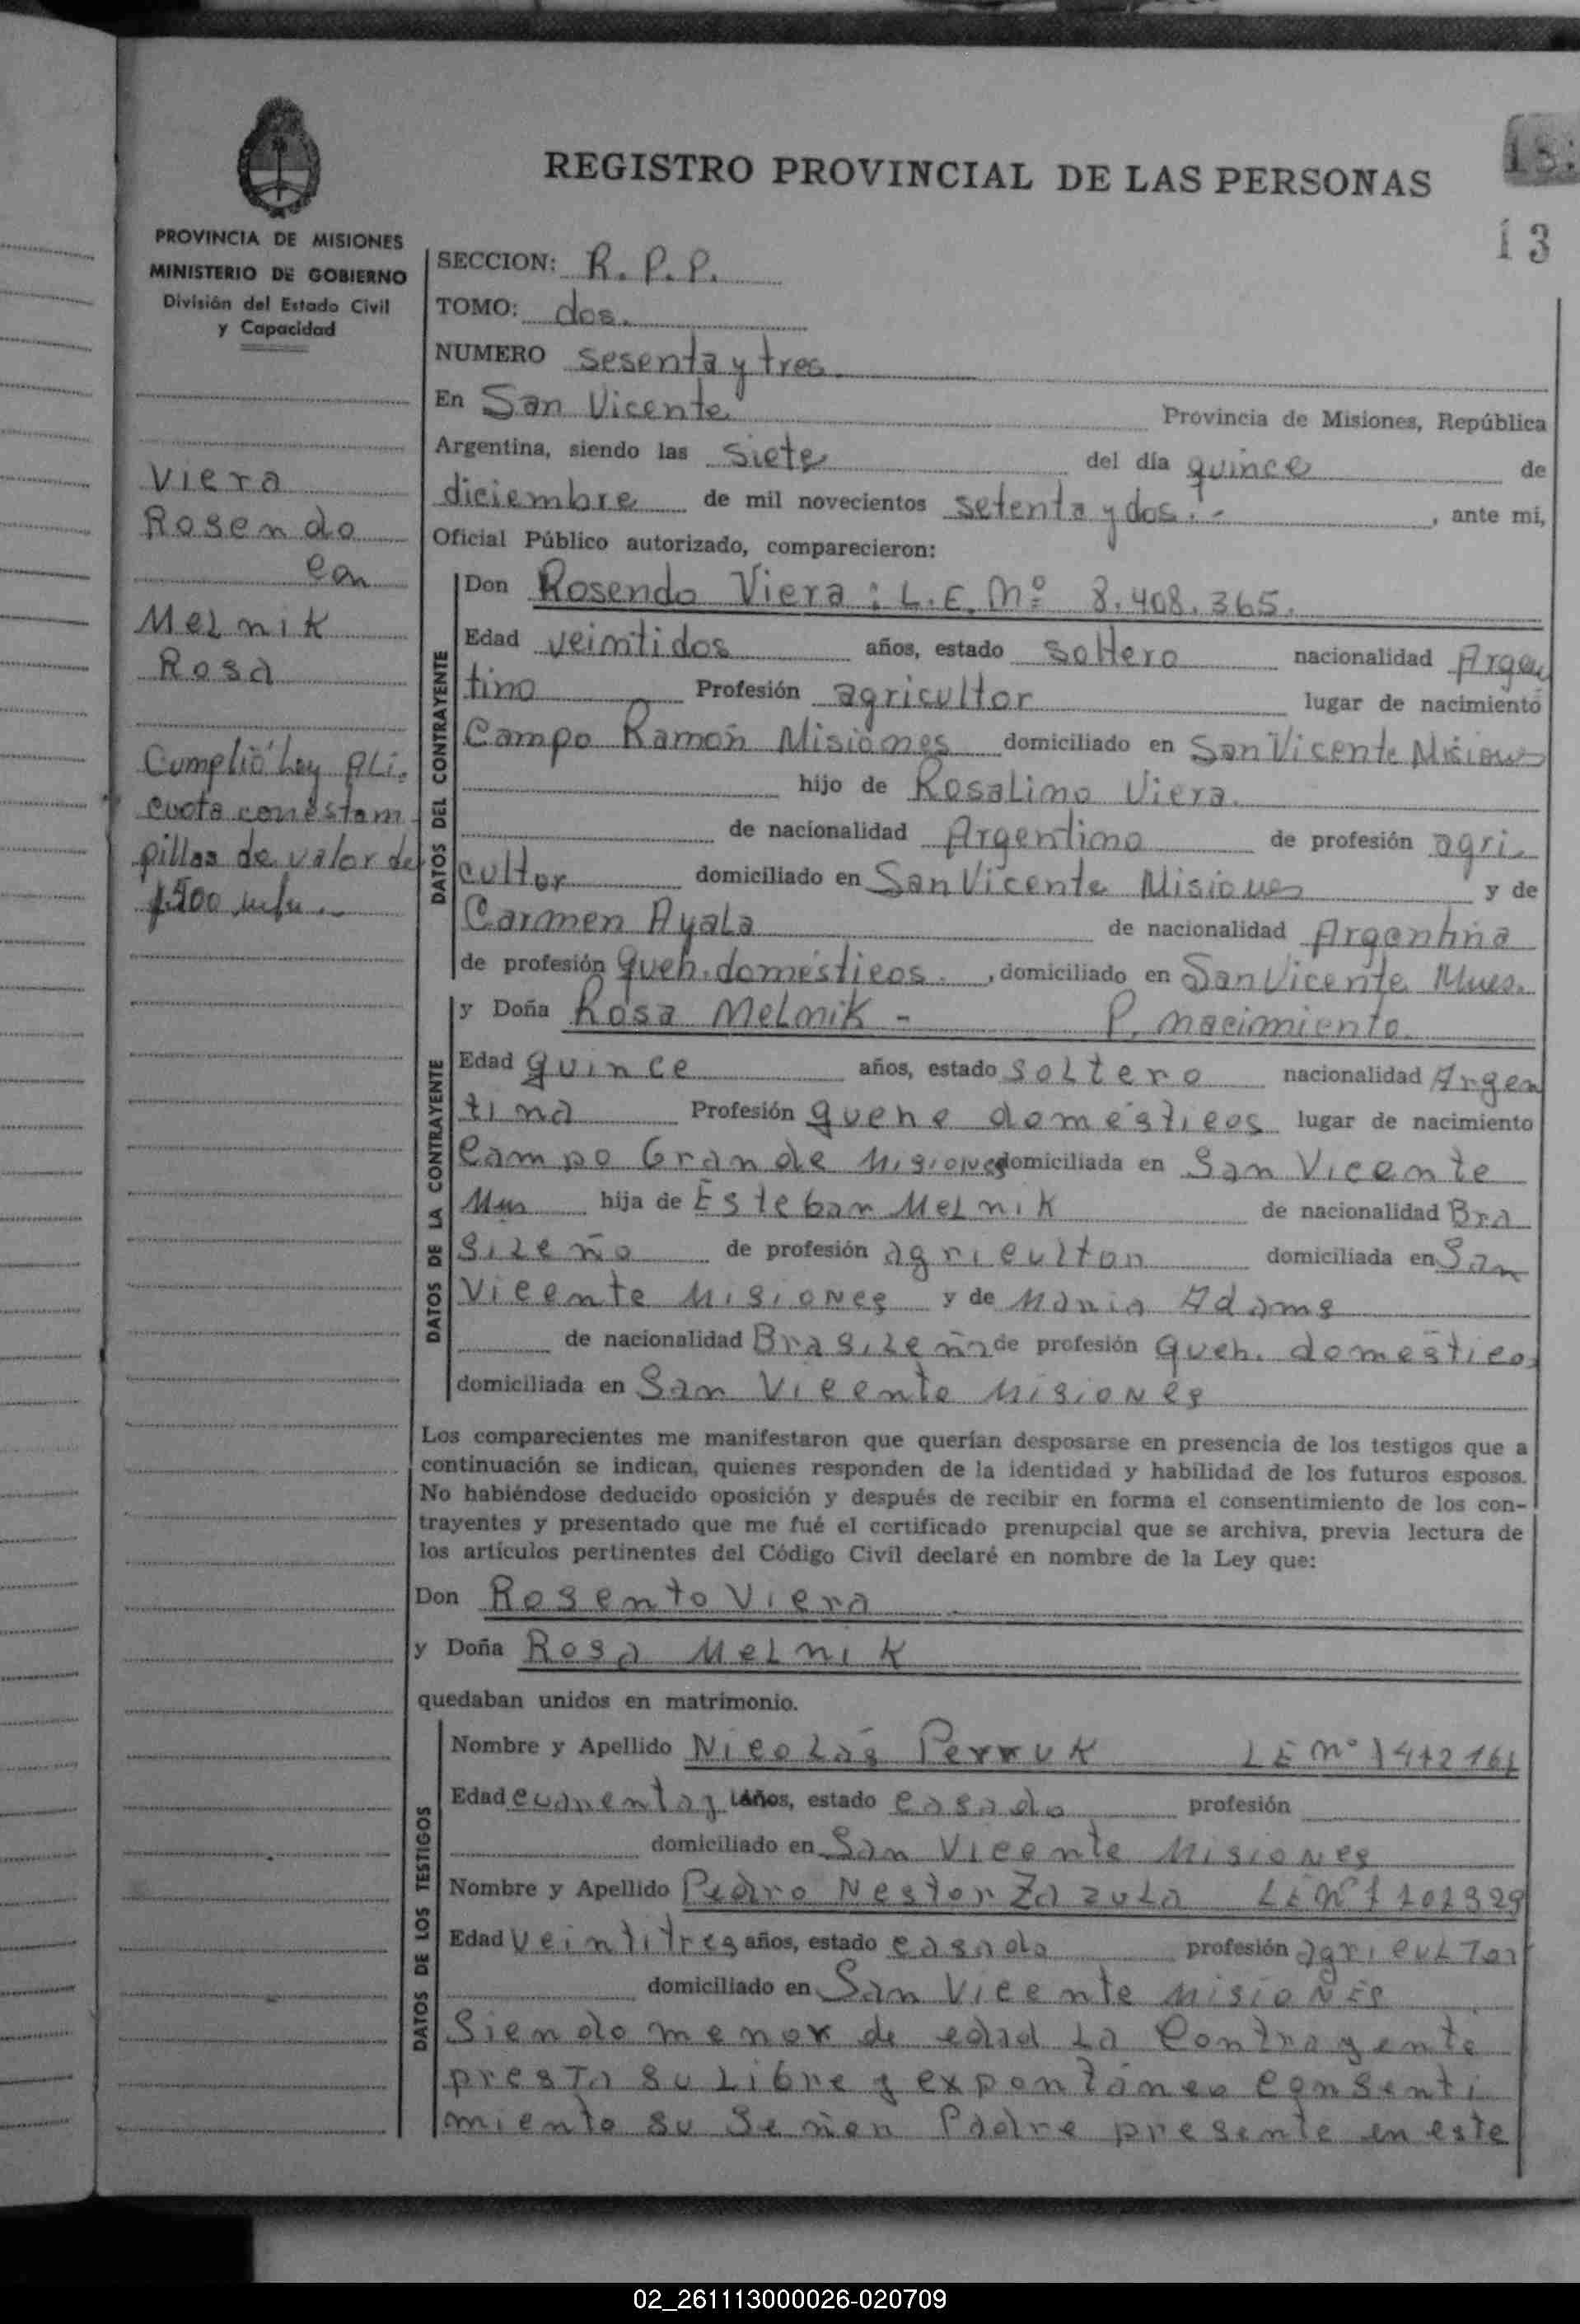 REGISTRO PROVINCIAL DE LAS PERSONAS
13
PROVINCIA DE MISIONES
MINISTERIO DE GOBIERNO
División del Estado Civil
y Capacidad
Viera
Rosendo
con
Melnik
Rosa
Cumplió Ley Ali.
cuota con estam
pillas de valor de
SECCION: R. P. P.
TOMO: dos.
NUMERO sesenta y tres.
En San Vicente Provincia de Misiones, República
Argentina, siendo las siete del día quince de
diciembre de mil novecientos setenta y dos. - , ante mi,
Oficial Público autorizado, comparecieron:
DATOS DEL CONTRAYENTE
Don Rosendo Viera : L.E. Nº 8.408.365.
Edad veintidos años, estado soltero nacionalidad Argen
tino Profesión agricultor lugar de nacimiento
Campo Ramón Misiones domiciliado en San Vicente Misiones
hijo de Rosalino Viera.
de nacionalidad Argentino de profesión agri
cultor domiciliado en San Vicente Misiones y de
Carmen Ayala de nacionalidad Argentina
de profesión queh. domésticos. , domiciliado en San Vicente Mnes.
DATOS DE LA CONTRAYENTE
y Doña Rosa Melnik - P. nacimiento.
Edad quince años, estado soltero nacionalidad Argen
tina Profesión quehe domésticos lugar de nacimiento
Campo Grande Misiones domiciliada en San Vicente
Mns hija de Esteban Melnik de nacionalidad Bra
sileño de profesión agricultor domiciliada en San
Vicente Misiones y de Maria Adams
de nacionalidad Brasileña de profesión queh. domésticos
domiciliada en San Vicente Misiones
Los comparecientes me manifestaron que querían desposarse en presencia de los testigos que a
continuación se indican, quienes responden de la identidad y habilidad de los futuros esposos.
No habiéndose deducido oposición y después de recibir en forma el consentimiento de los con-
trayentes y presentado que me fué el certificado prenupcial que se archiva, previa lectura de
los artículos pertinentes del Código Civil declaré en nombre de la Ley que:
Don Rosento Viera
y Doña Rosa Melnik
quedaban unidos en matrimonio.
DATOS DE LOS TESTIGOS
Nombre y Apellido Nicolás LE Nº
Edad cuarenta y años, estado casado profesión
domiciliado en San Vicente Misiones
Nombre y Apellido Pedro Nestor Zazula LE Nº
Edad veintitres años, estado casado profesión agricultor
domiciliado en San Vicente Misiones
Siendo menor de edad la Contrayente
presta su Libre y expontáneo consenti
miento su Señor Padre presente en este
02_261113000026-020709